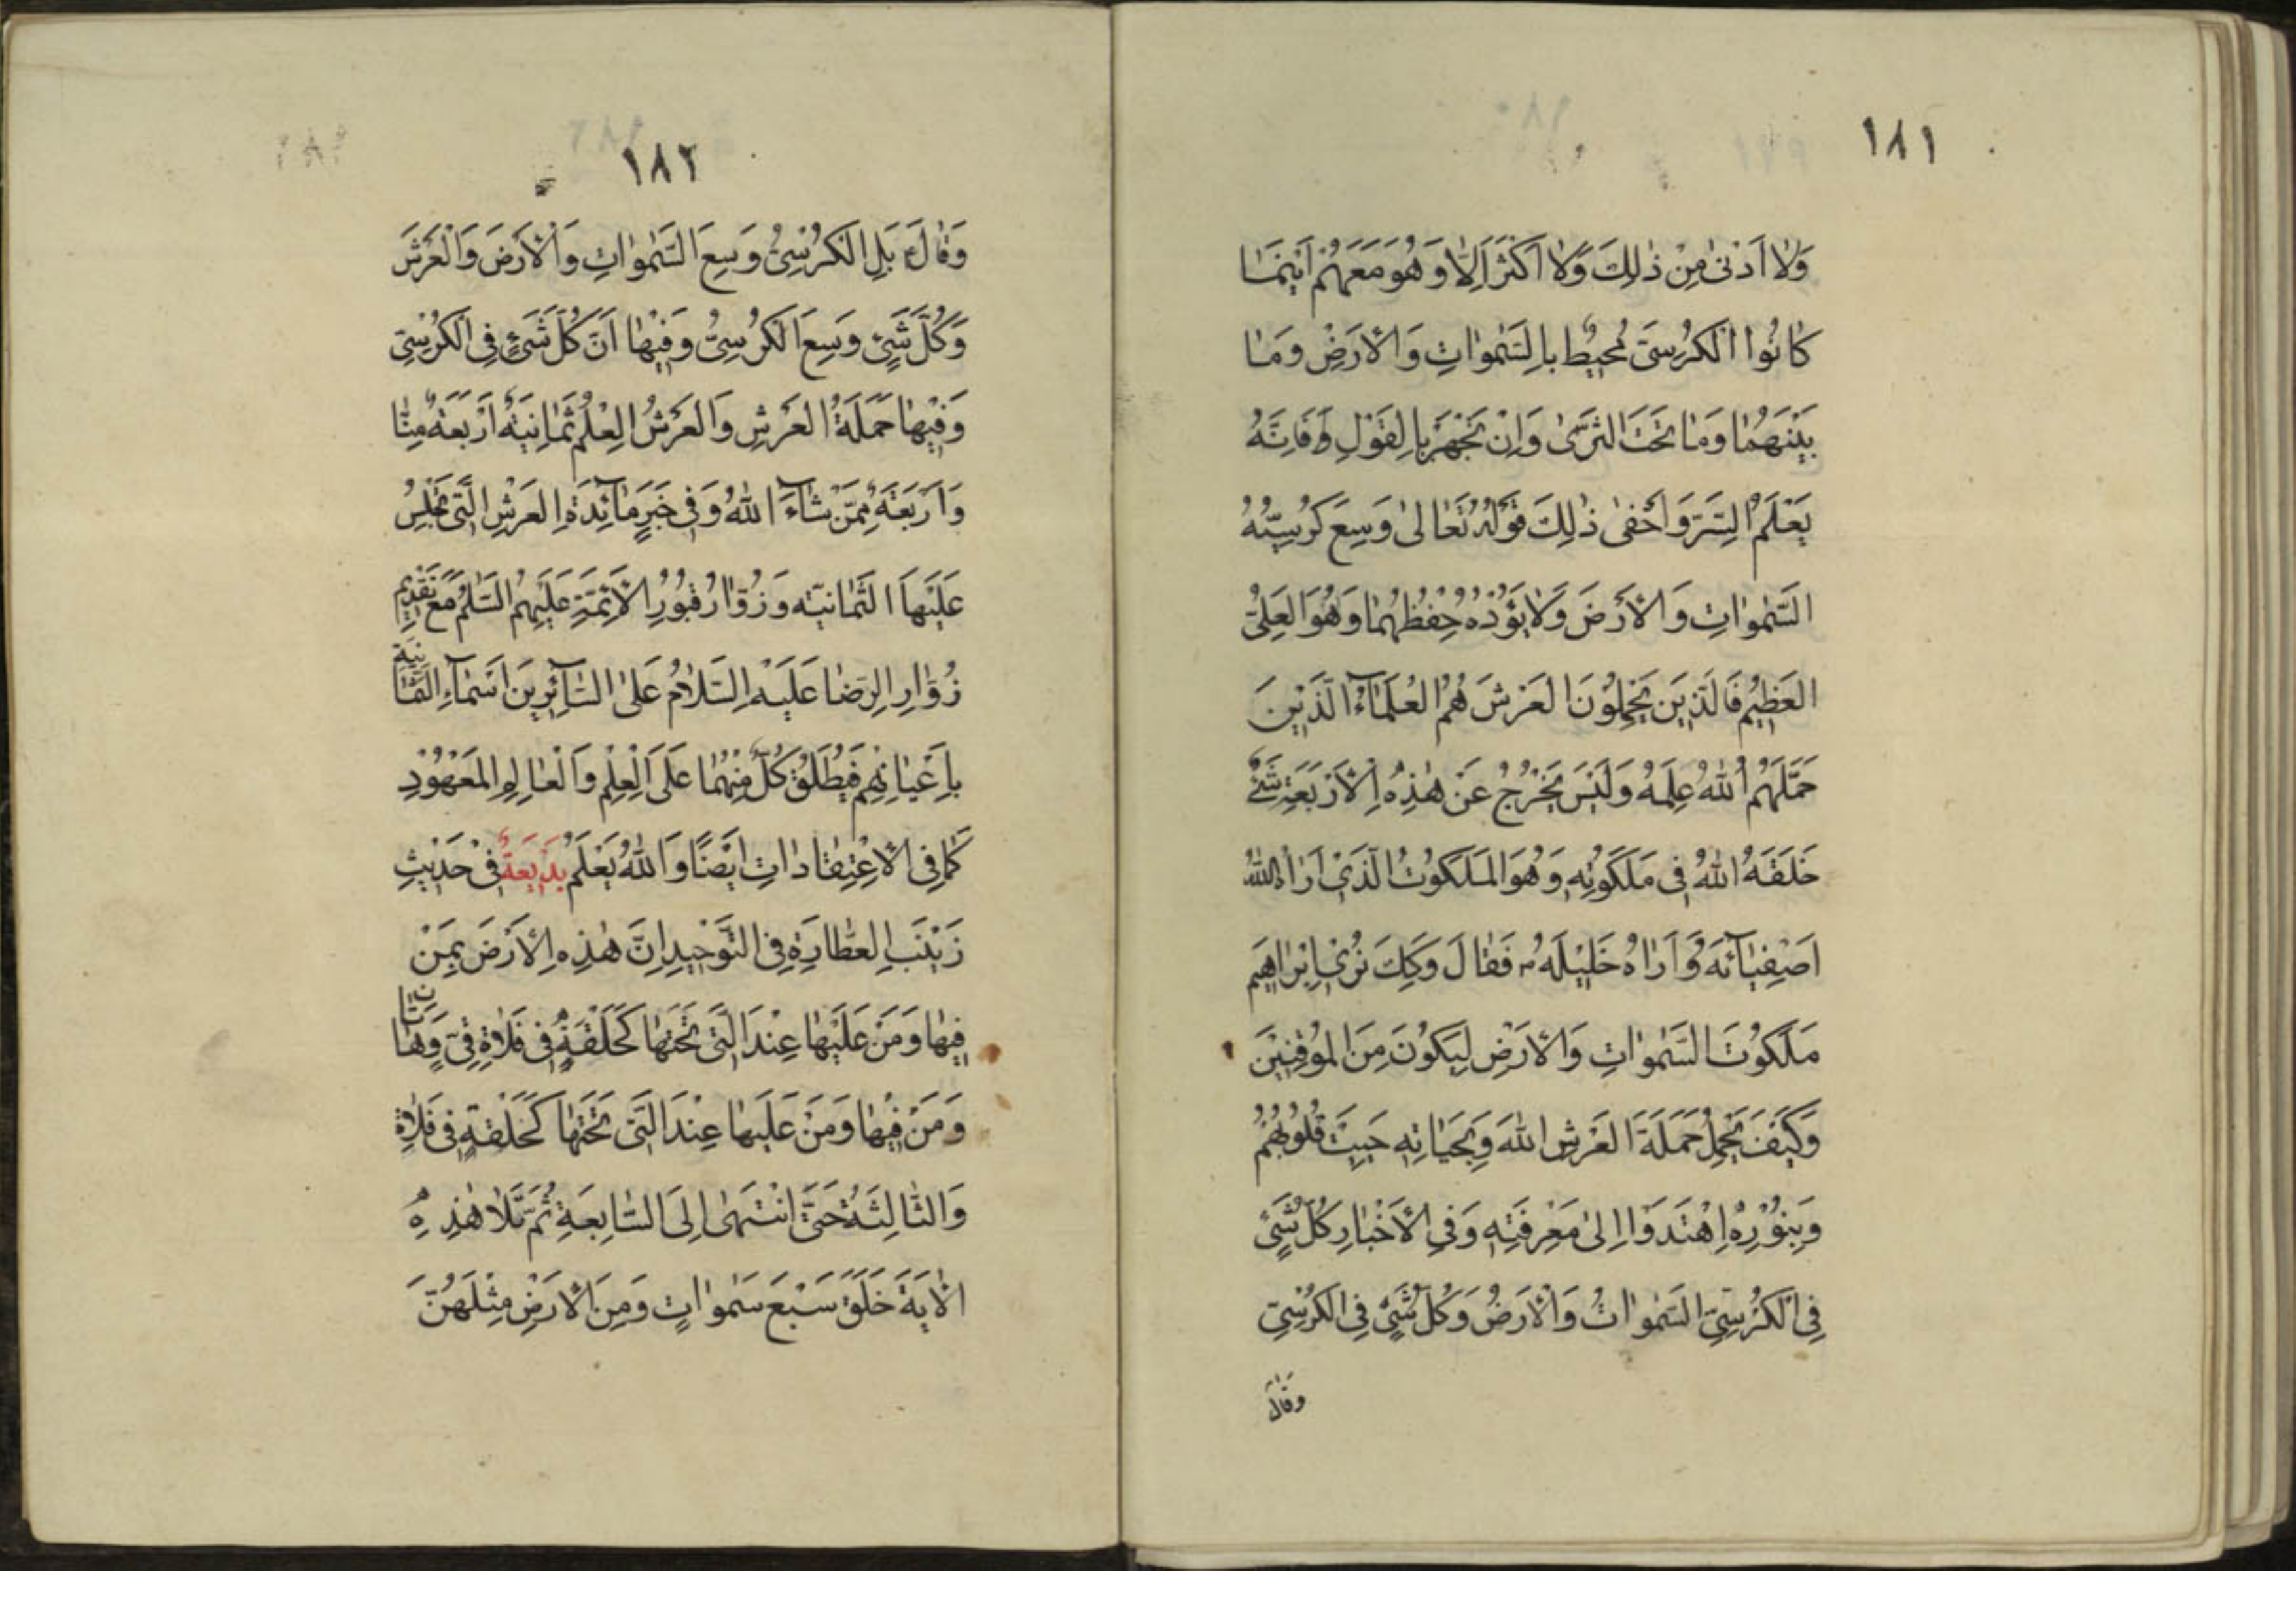 ١٨١
وَلٰا اَدْنىٰ مِنْ ذٰلِكَ وَلٰا اَكْثَرَ اِلّٰا وَهُوَ مَعَهُمْ اَيْنَمٰا
كٰانُوا الْكُرْسِىّ مُحيٖطٌ بِالسَّمٰوٰاتِ وَالْاَرْضِ وَمٰا
بَيْنَهُمٰا وَمٰا تَحْتَ الثَّرىٰ وَاِنْ تَجْهَرْ بِالْقَوْلِ فَاِنَّهُ
يَعْلَمُ السِّرَّ وَاَخْفىٰ ذٰلِكَ قَوْلُهُ تَعٰالىٰ وَسِعَ كُرْسِيُّهُ
السَّمٰوٰاتِ وَالْاَرْضَ وَلٰا يَؤُدُهُ حِفْظُهُمٰا وَهُوَ الْعَلِىُّ
الْعَظيٖمُ فَالَّذيٖنَ يَحْمِلُوْنَ الْعَرْشَ هُمُ الْعُلَمٰاءُ الَّذيٖنَ
حَمَّلَهُمُ اللّٰهُ عِلْمَهُ وَلَيْسَ يَخْرُجُ عَنْ هٰذِهِ الْاَرْبَعَةِ شَىْءٌ
خَلَقَهُ اللّٰهُ فِى مَلَكُوْتِهِ وَهُوَ الْمَلَكُوْتُ الَّذيٖ اَرٰاهُ اللّٰهُ
اَصْفِيٰآئَهُ وَاَرٰاهُ خَليٖلَهُ ؑ فَقٰالَ وَكَذٰلِكَ نُريٖ اِبْرٰاهيٖمَ
مَلَكُوْتَ السَّمٰوٰاتِ وَالْاَرْضِ لِيَكُوْنَ مِنَ الْمُوْقِنيٖنَ
وَكَيْفَ يَحْمِلُ حَمَلَةُ الْعَرْشِ اللّٰهَ وَبِحَيٰاتِهِ حَيِيَتْ قُلُوْبُهُمْ
وَبِنُوْرِهِ اهْتَدَوْا اِلىٰ مَعْرِفَتِهِ وَفِى الْاَخْبٰارِ كُلُّ شَىْءٍ
فِى الْكُرْسِىِّ السَّمٰوٰاتُ وَالْاَرْضُ وَكُلُّ شَىْءٍ فِى الْكُرْسِىِّ
وَقٰالَ
١٨٢
وَقٰالَ ؑ بَلِ الْكُرْسِىُّ وَسِعَ السَّمٰوٰاتِ وَالْاَرْضَ وَالْعَرْشَ
وَكُلَّ شَىْءٍ وَسِعَ الْكُرْسِىُّ وَفيٖهٰا اَنَّ كُلَّ شَىْءٍ فِى الْكُرْسِىِّ
وَفيٖهٰا حَمَلَةُ الْعَرْشِ وَالْعَرْشُ الْعِلْمُ ثَمٰانِيَةٌ اَرْبَعَةٌ مِنّٰا
وَاَرْبَعَةٌ مِمَّنْ شٰآءَ اللّٰهُ وَفِى خَبَرِ مٰآئِدَةِ الْعَرْشِ الَّتى يَجْلِسُ
عَلَيْهَا الثَّمٰانِيَه وَزُوّٰارُ قُبُوْرِ الْاَئِمَّةِ عَلَيْهِمُ السَّلٰمُ مَعَ تَقْديٖمِ
زُوّٰارِ الرِّضٰا عَلَيْهِ السَّلٰامُ عَلَى السّٰآئِريٖنَ اَسْمٰآءِ الثَّمٰانِيَةِ
بِاَعْيٰانِهِمْ فَيُطْلَقُ كُلٌّ مِنْهُمٰا عَلَى الْعِلْمِ وَالْعٰالَمِ الْمَعْهُوْدِ
كَمٰا فِى الْاِعْتِقٰادٰاتِ اَيْضًا وَاللّٰهُ يَعْلَمُ بَديٖعَةٌ فِى حَديٖثِ
زَيْنَبِ الْعَطّٰارَةِ فِى التَّوْحيٖدِ اِنَّ هٰذِهِ الْاَرْضَ بِمَنْ
فيٖهٰا وَمَنْ عَلَيْهٰا عِنْدَ الَّتى تَحْتَهٰا كَحَلْقَةٍ فِى فَلٰاةٍ قِىٍّ وَهٰاتٰانِ
وَمَنْ فيٖهٰا وَمَنْ عَلَيْهٰا عِنْدَ الَّتى تَحْتَهٰا كَحَلْقَةٍ فِى فَلٰاةٍ
وَالثّٰالِثَةُ حَتَّى انْتَهىٰ اِلَى السّٰابِعَةِ ثُمَّ تَلٰا هٰذِهِ
الْاٰيَةَ خَلَقَ سَبْعَ سَمٰوٰاتٍ وَمِنَ الْاَرْضِ مِثْلَهُنَّ